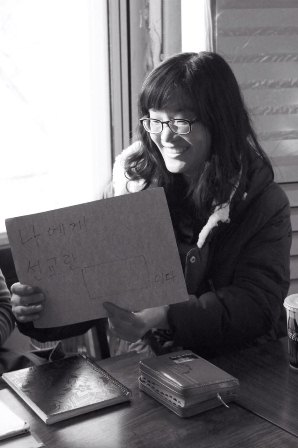 나에게
선교란
이다